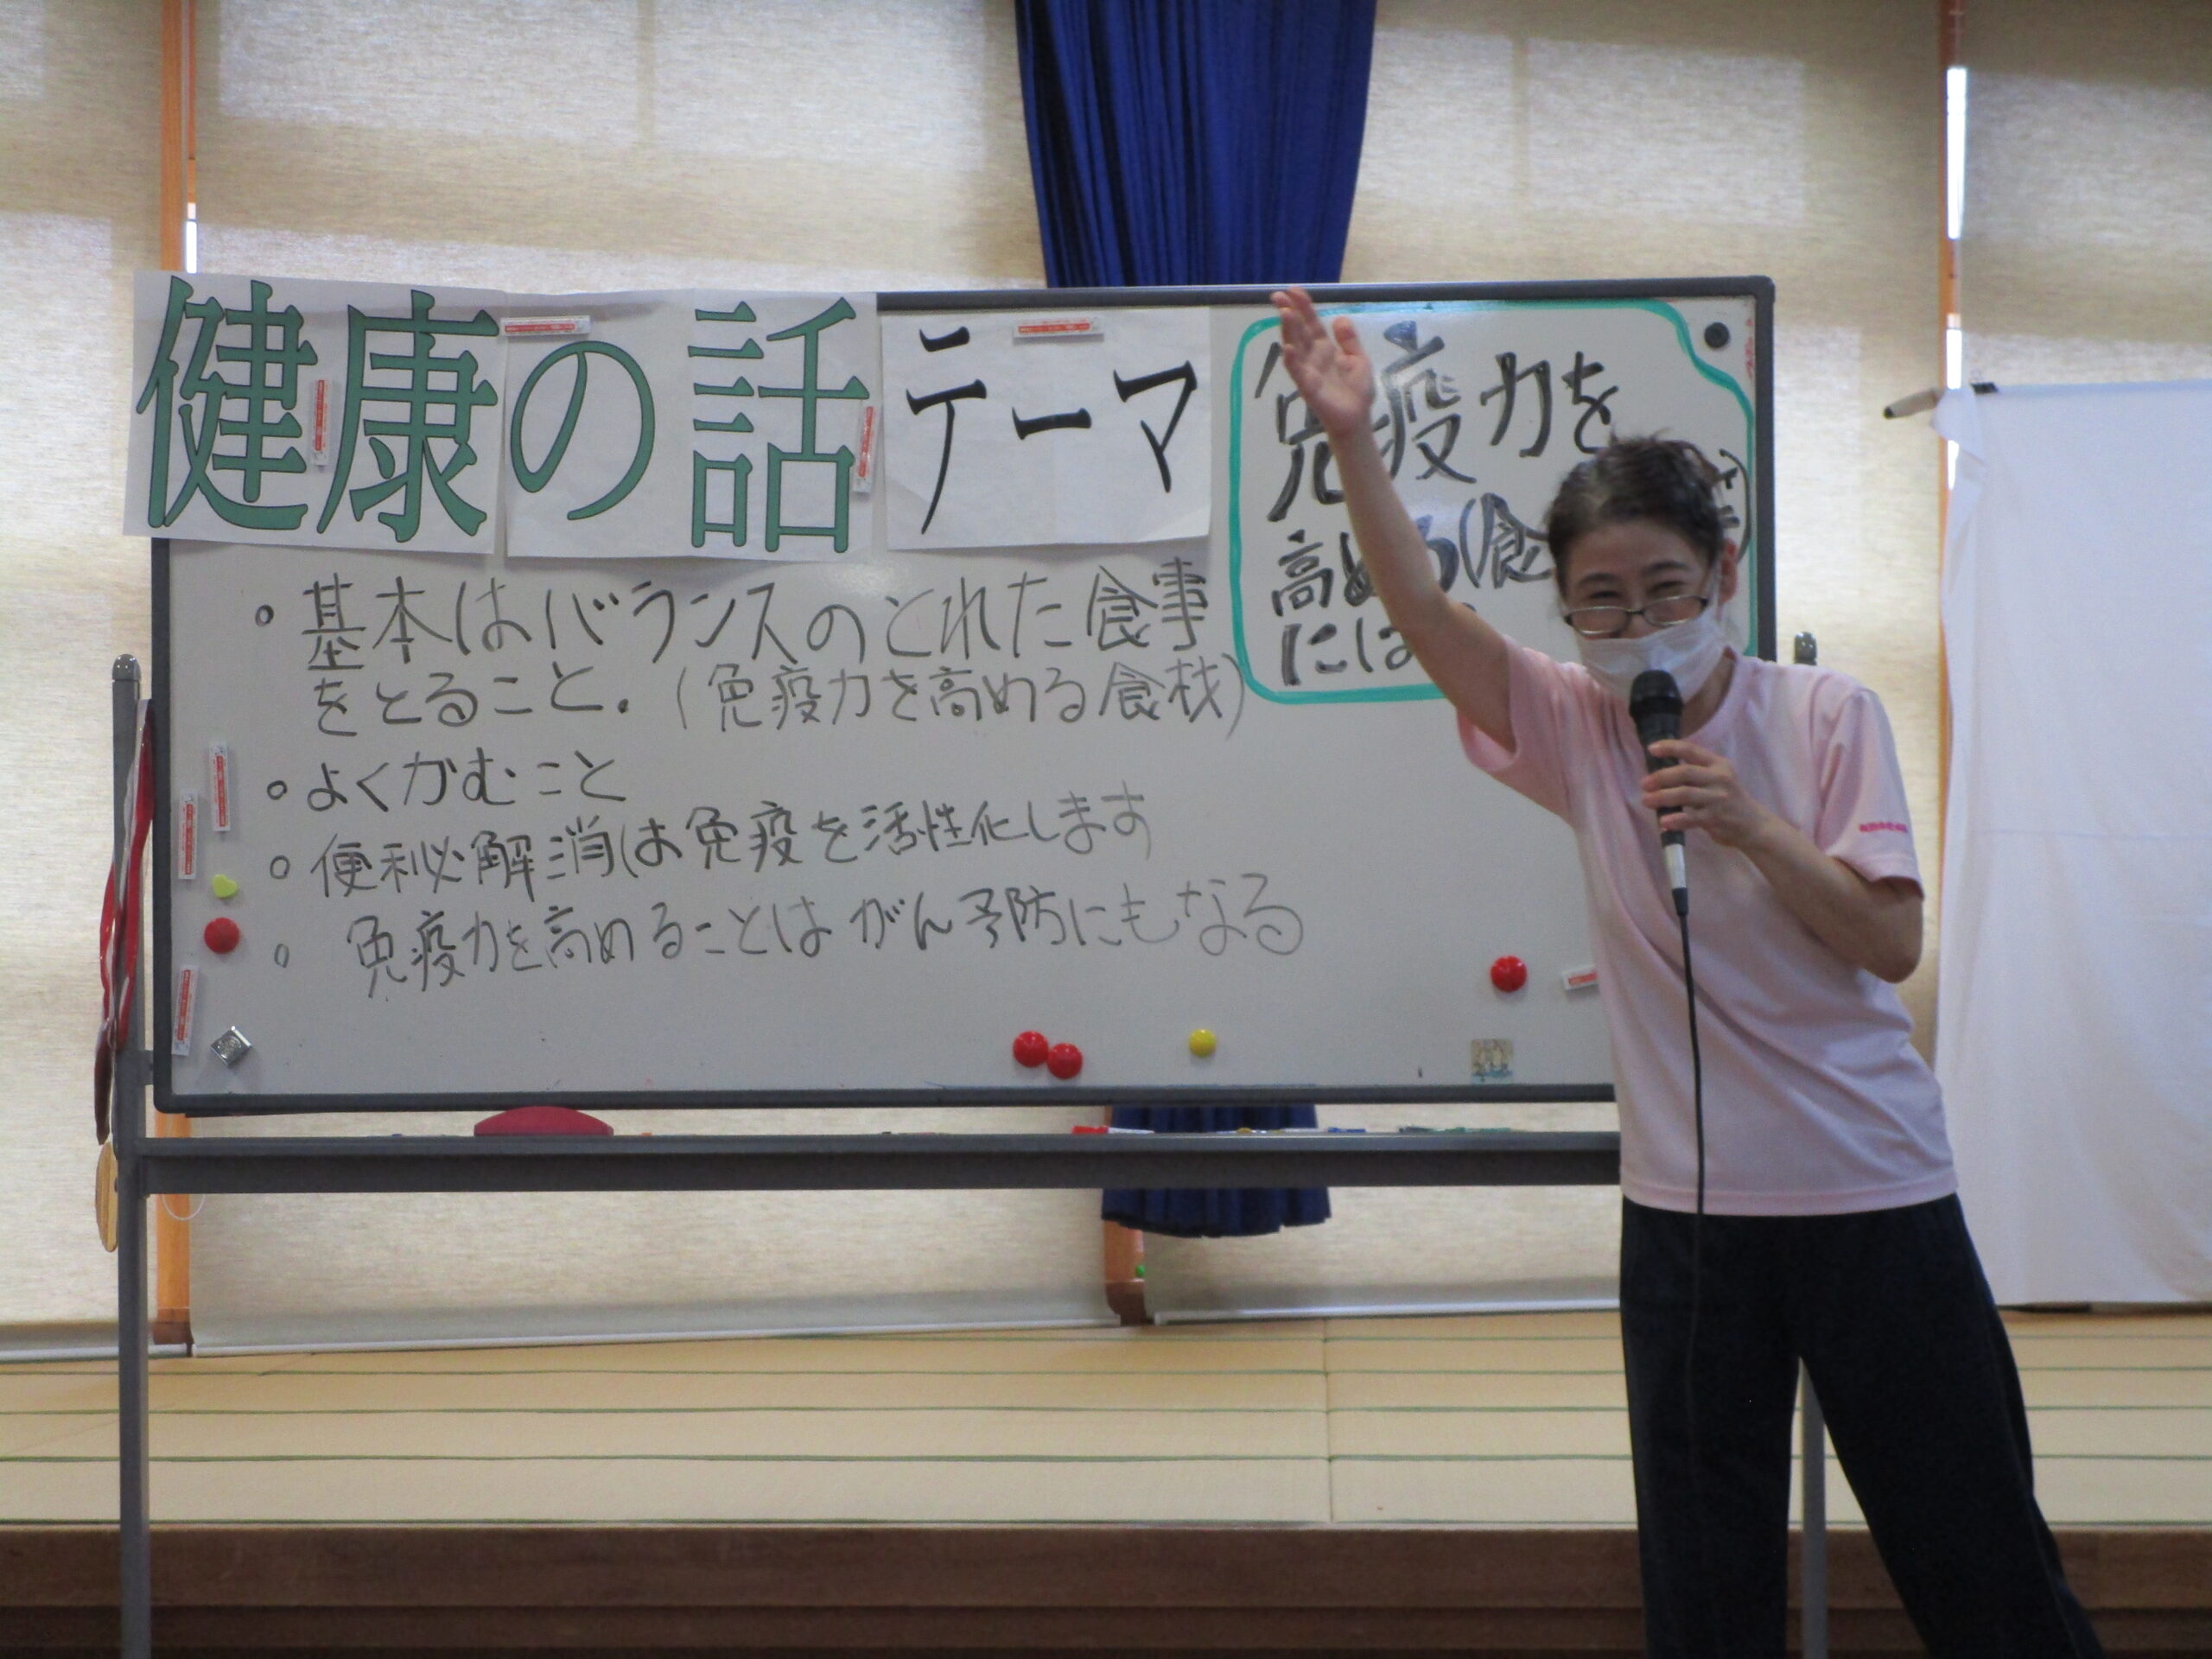 健康の話 テーマ
免疫力を
高める(食
には
。基本はバランスのとれた食事
をとること.(免疫力を高める食材)
。よくかむこと
。便秘解消は免疫を活性化します
。免疫力を高めることはがん予防にもなる